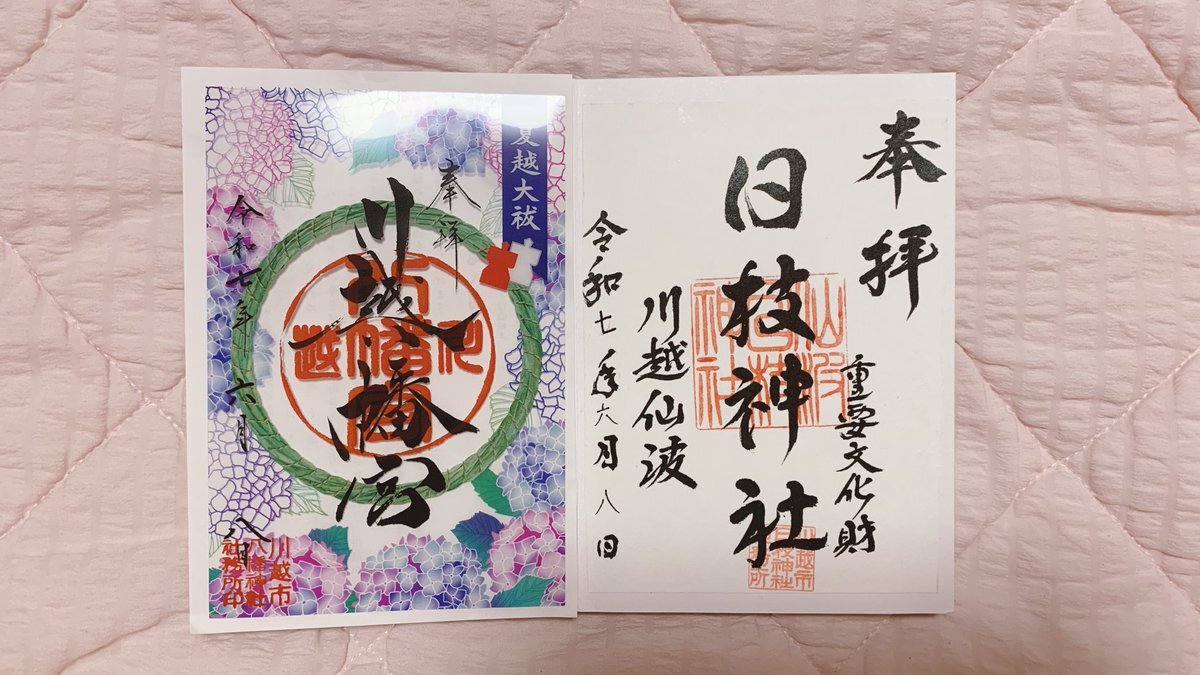 奉拝
重要文化財
日枝神社
仙波
日枝
神社
川越市
日枝神社
川越仙波
令和七年六月八日
夏越大祓
奉拝
川越八幡宮
令和七年六月八日
川越市
八幡神社
社務所印